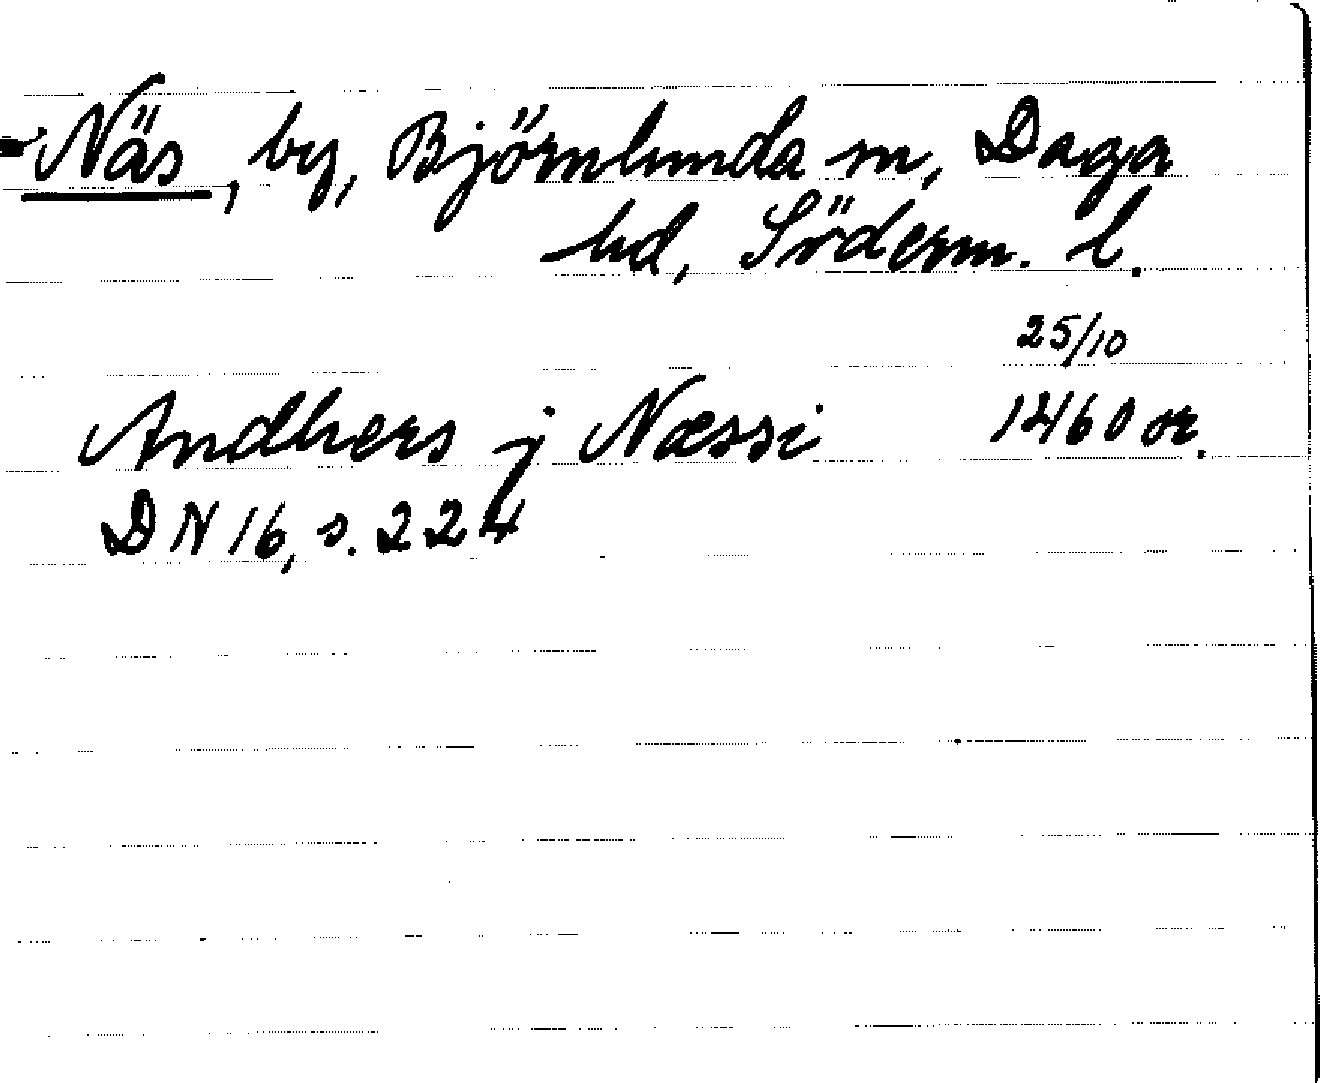 Näs, by, Björnlunda sn, Daga
hd, Söderm. l.
25/10
Andhers j Næssi 1460 or.
DN 16, s. 224